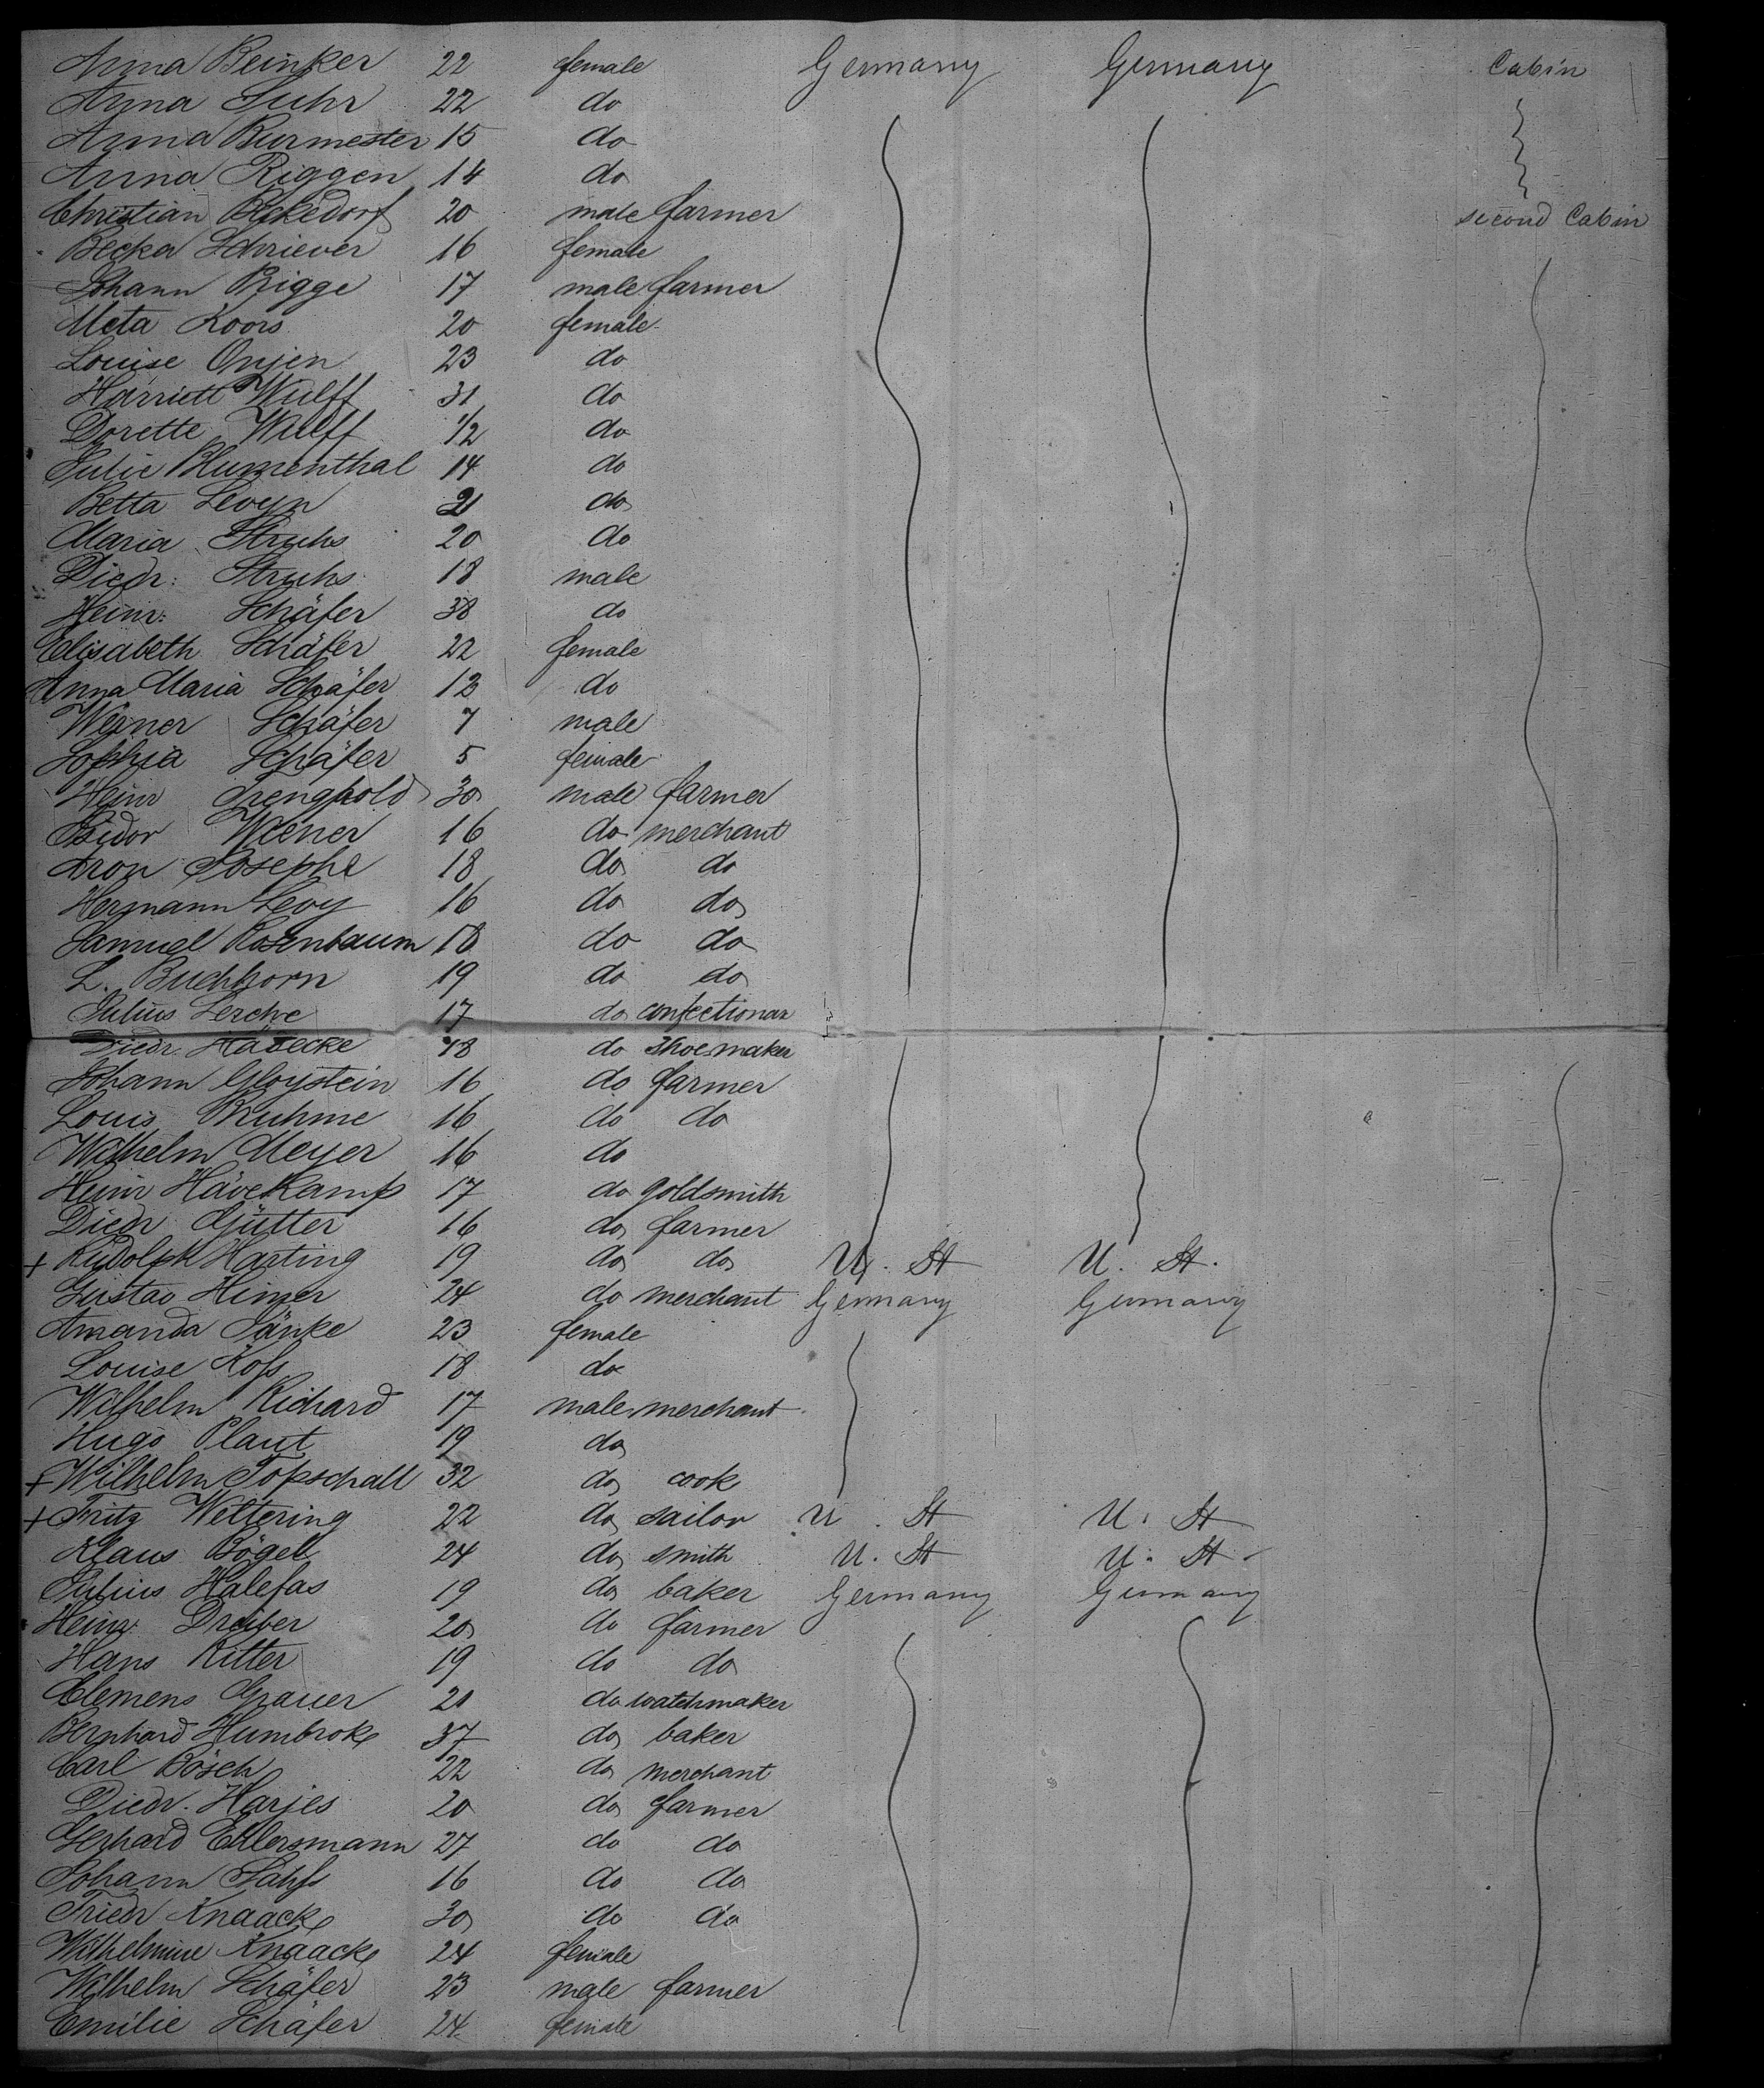 Anna Beinker 22 female Germany Germany Cabin
Anna Suhr 22 do
Anna Burmester 15 do
Anna Riggen 14 do
Christian Bickedorf 20 male farmer second Cabin
Becka Schriever 16 female
Johann Brigge 17 male farmer
Meta Koors 20 female
Louise Onjen 23 do
Harriett Wulff 31 do
Dorette Wulff 1/2 do
Julie Blumenthal 14 do
Betta Levyn 21 do
Maria Struhs 20 do
Diedr: Struhs 18 male
Heinr: Schäfer 38 do
Elisabeth Schäfer 22 female
Anna Maria Schäfer 12 do
Werner Schäfer 7 male
Sophia Schäfer 5 female
Heinr Trenghold 30 male farmer
Isidor Wiener 16 do merchant
Aron Josephe 18 do do
Hermann Levy 16 do do
Samuel Rosenbaum 18 do do
L. Buchhorn 19 do do
Julius Lerche 17 do confectionar
Diedr. Häsecke 18 do shoemaker
Johann Gloystein 16 do farmer
Louis Bruhme 16 do do
Wilhelm Meyer 16 do
Heinr Hävekamp 17 do goldsmith
Diedr Gütter 16 do farmer
+ Rudolph Harting 19 do do U. St U. St.
Gustav Himer 24 do merchant Germany Germany
Amanda Jänke 23 female
Louise Koss 18 do
Wilhelm Richard 17 male merchant
Hugo Plaut 19 do
+ Wilhelm Topschall 32 do cook
+ Fritz Wettering 22 do sailor U. St U. St
Klaus Bögel 24 do smith U. St U. St
Julius Halefas 19 do baker Germany Germany
Heinr Dreyer 20 do farmer
Hans Ritter 19 do do
Clemens Grauer 21 do watchmaker
Bernhard Humbroke 37 do baker
Carl Bösch 22 do merchant
Diedr. Harjes 20 do farmer
Gerhard Ehlersmann 27 do do
Johann 16 do do
Friedr Knaacke 30 do do
Wilhelmine Knaacke 24 female
Wilhelm Schäfer 23 male farmer
Emilie Schäfer 24 female